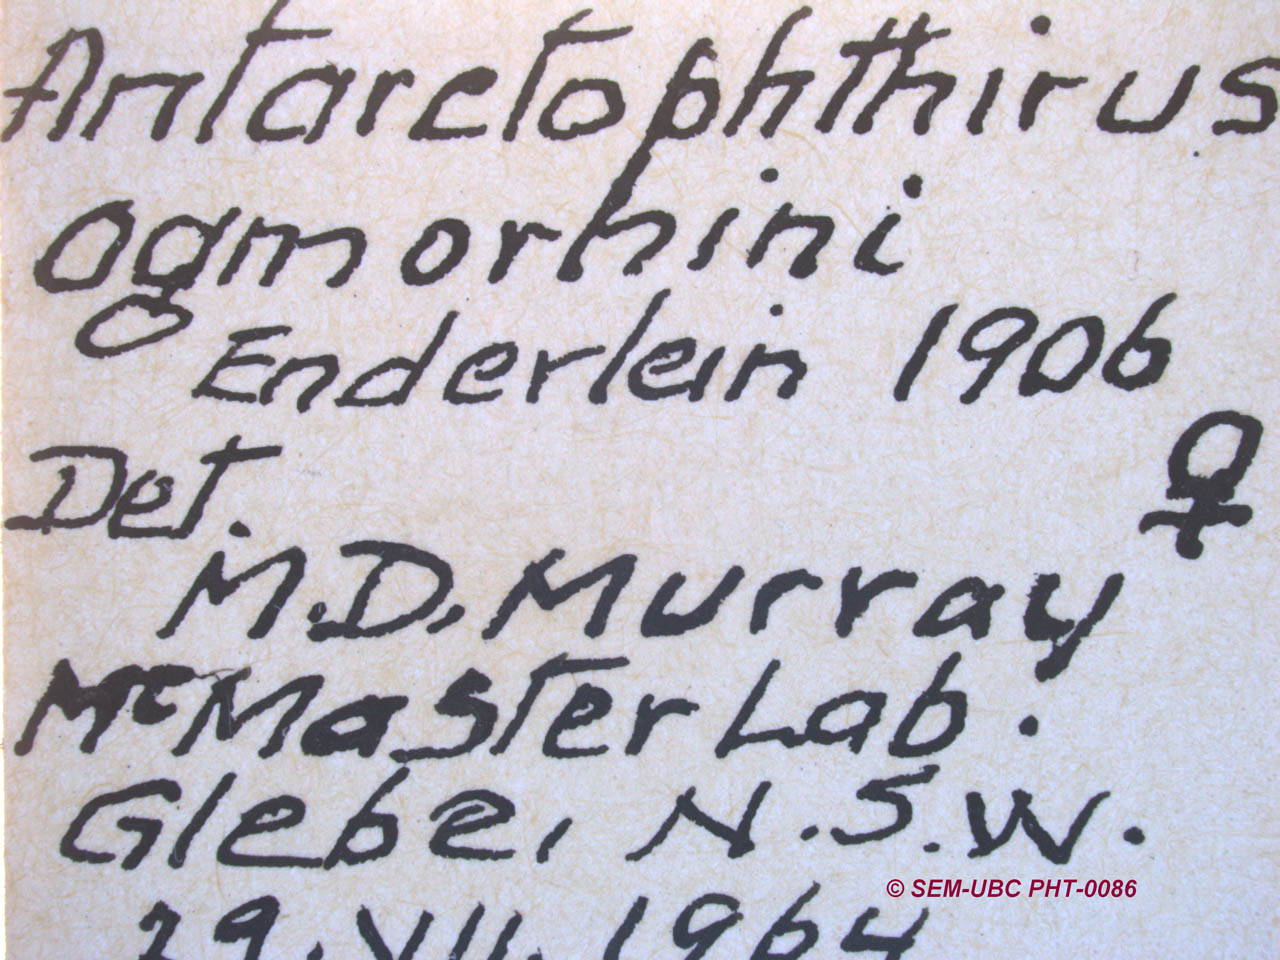 Antarctophthirus
ogmorhini
Enderlein 1906
♀
Det.
M.D. Murray
McMaster Lab.
Glebe, N.S.W.
© SEM-UBC PHT-0086
29.VII.1964